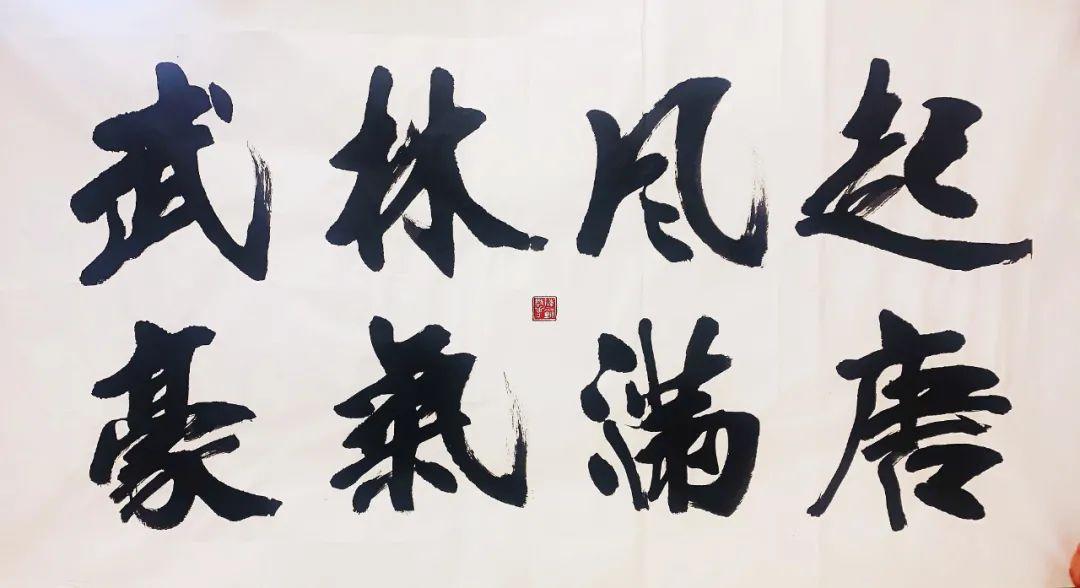 武林风起
豪氣满唐